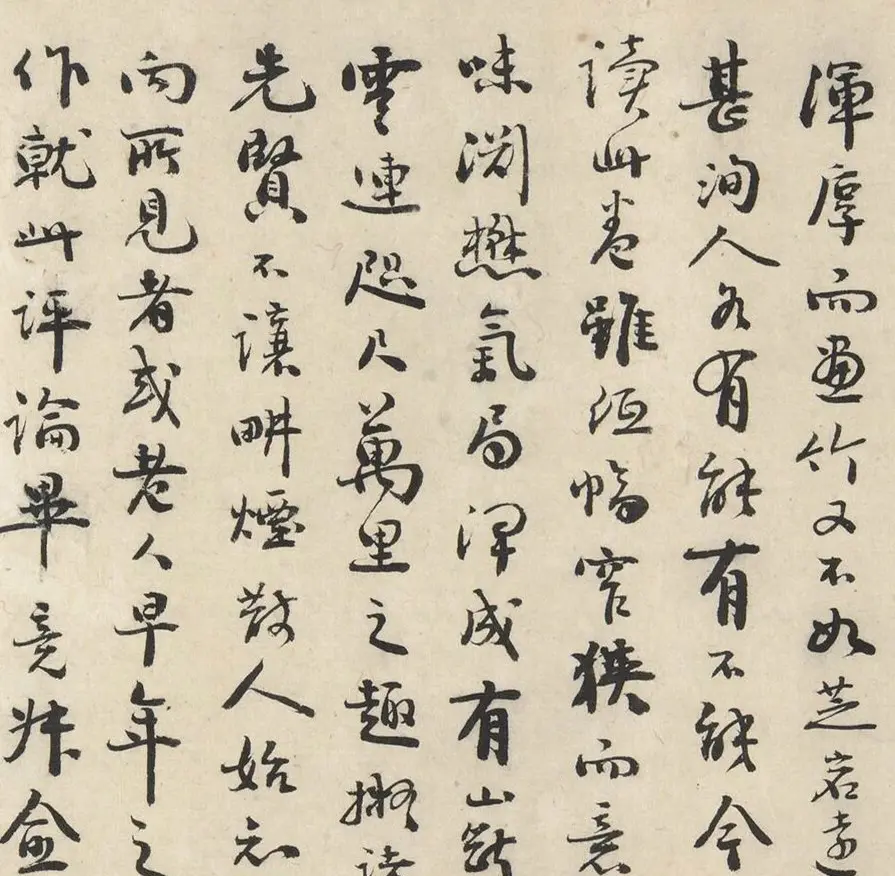 渾厚而畫竹又不如芝岩遠
甚洵人各有能有不能今
讀此卷雖紙幅窄狹而意
味淵懋氣局渾成有山斷
雲連咫尺萬里之趣擬諸
先賢不讓畊煙散人始知
向所見者或老人早年之
作就此評論畢竟